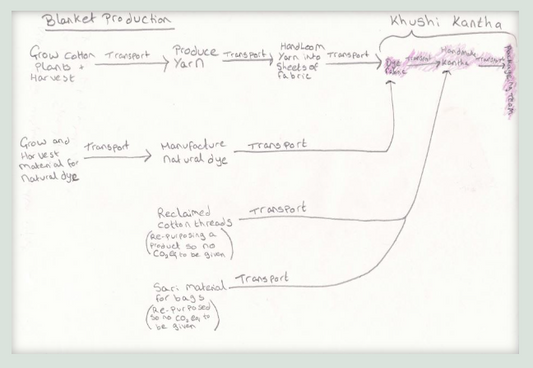 Blanket Production
Khushi Kantha
Grow Cotton
Plants +
Harvest
Transport
Produce
Yarn
Transport
Handloom
Yarn into
Sheets of
fabric
Transport
Dye
Fabric
Transport
Handmade
Kantha
Transport
Grow and
Harvest
Material for
Natural dye
Transport
Manufacture
natural dye
Transport
Reclaimed
cotton threads
(Re-purposing a
product so no
CO2 eq to be given)
Transport
Sari material
for bags
(Re-purposed
so no CO2 eq to
be given)
Transport